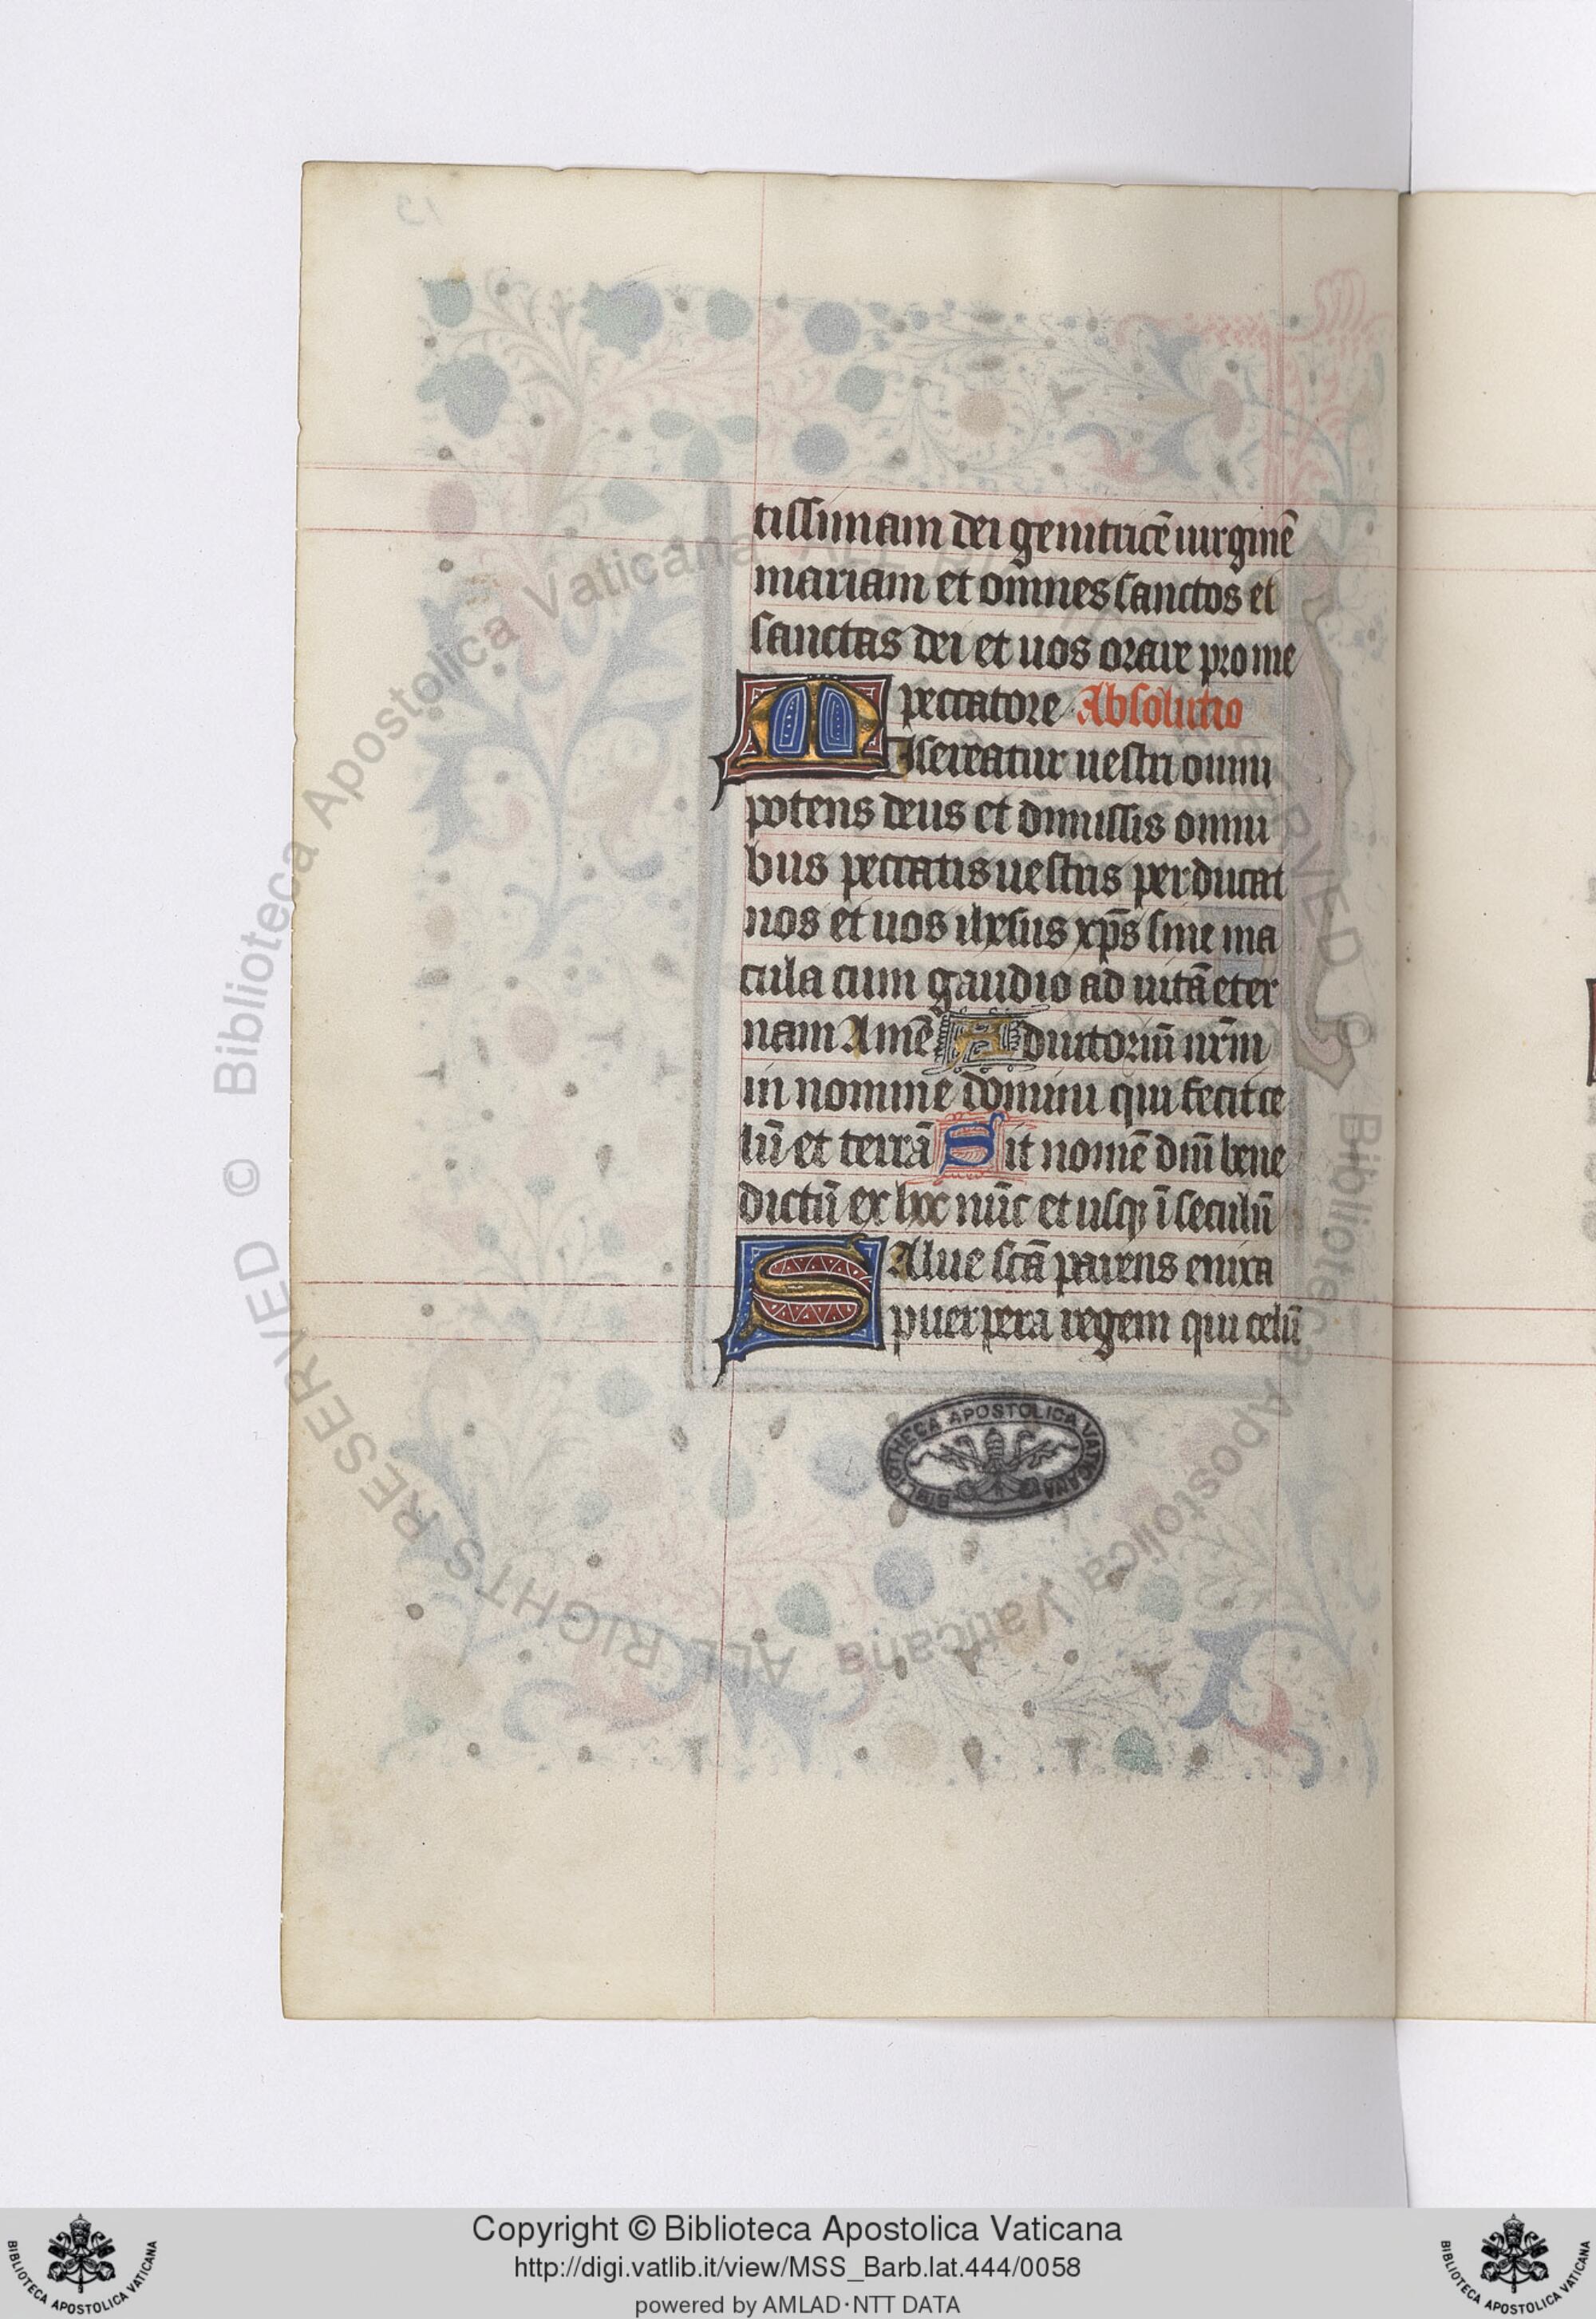 tissimam dei genitricē uirginē
mariam et omnes sanctos et
sanctas dei et uos orare pro me
peccatore Absolutio
Misereatur uestri omni
potens deus et dimissis omni
bus peccatis uestris perducat
nos et uos ihesus xp̄s sine ma
cula cum gaudio ad uitā eter
nam Amē Adiutoriū nr̄m
in nomine domini qui fecit ce
lū et terrā Sit nomē dn̄i bene
dictū ex hoc nūc et usq; ī seculū
Salue sc̄a parens enixa
puerpera regem qui celū
BIBLIOTHECA APOSTOLICA VATICANA
© Biblioteca Apostolica Vaticana ALL RIGHTS RESERVED © Biblioteca Apostolica Vaticana ALL RIGHTS RESERVED
Copyright © Biblioteca Apostolica Vaticana
http://digi.vatlib.it/view/MSS_Barb.lat.444/0058
powered by AMLAD·NTT DATA
BIBLIOTECA APOSTOLICA VATICANA
BIBLIOTECA APOSTOLICA VATICANA